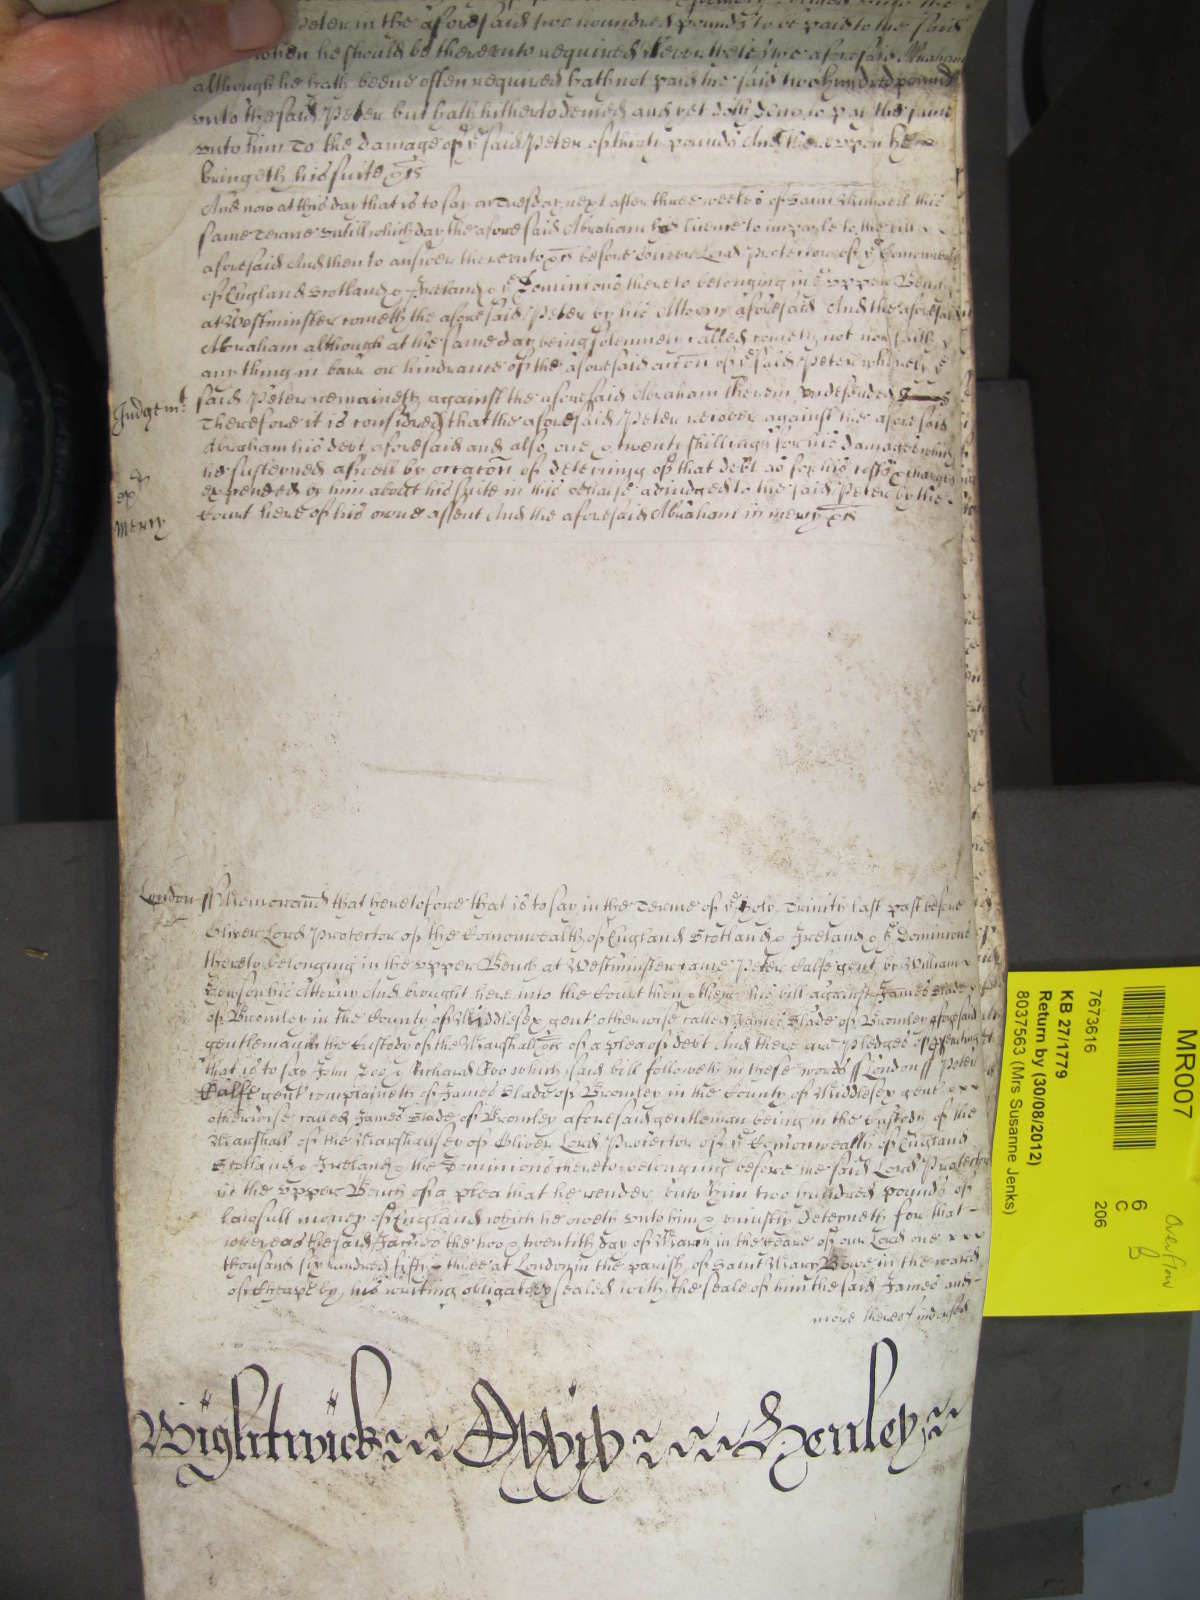 Peter in the aforesaid two hundred pounds to be paid to the said
when he should be thereunto required Neverthelesse the aforesaid Abraham
although he hath beene often required hath not paid the said two hundred pounds
unto the said Peter but hath hitherto denied and yet doth deny to pay the same
unto him To the damage of ye said Peter of thirty pounds And thereupon he
bringeth his suite &c
And now at this day that is to say on Tuesday next after three weekes of Saint Michaell this
same Terme untill which day the aforesaid Abraham had licence to imparle to the bill
aforesaid And then to answer thereunto &c before Oliver Lord Protector of ye Comonwealth
of England Scotland & Ireland & ye Dominions thereto belonging in ye upper Bench
at Westminster cometh the aforesaid Peter by his Attorny aforesaid And the aforesaid
Abraham although at the same day being solemnely called cometh not nor saith
any thing in barr or hindrance of the aforesaid accon of ye said Peter whereby ye
said Peter remaineth against the aforesaid Abraham therein undefended
Judgemt
Therefore it is considred that the aforesaid Peter recover against the aforesaid
Abraham his debt aforesaid and also one & twenty shillings for his damages which
he susteyned aswell by occasion of deteyning of that debt as for his costs & charges
expended by him about his suite in this behalfe adiudged to the said Peter by the
Court here of his owne assent And the aforesaid Abraham in mercy &c
Mercy
London ss Memorand that heretofore that is to say in the Terme of ye holy Trinity last past before
Oliver Lord Protector of the Comonwealth of England Scotland & Ireland & ye Dominions
thereto belonging in the upper Bench at Westminster came Peter Calfe gent by William
his Attorny And brought here into the Court then & there his bill against James Slade
of Bromley in the County of Middlesex gent otherwise called James Slade of Bromley aforesaid
gentleman in the Custody of the Marshall &c of a plea of debt And there are pledges of
that is to say John Doo & Richard Roo which said bill followeth in these words ss London ss Peter
Calfe gent complaineth of James Slade of Bromley in the County of Middlesex gent
otherwise called James Slade of Bromley aforesaid gentleman being in the Custody of the
Marshall of the Marshallsey of Oliver Lord Protector of ye Comonwealth of England
Scotland & Ireland & the Dominions thereto belonging before the said Lord Protector
in the upper Bench of a plea that he render unto him two hundred pounds of
lawfull money of England which he oweth unto him & uniustly deteyneth for that
whereas the said James the two & twentith day of March in the yeare of our Lord one
thousand six hundred fifty three at London in the parish of Saint Mary Bowe in the ward
of Cheape by his writing obligatory sealed with the seale of him the said James and
more thereof indorsed
Wightwick Henley
MR007
7673616
KB 27/1779
Return by (30/08/2012)
8037563 (Mrs Susanne Jenks)
6
C
206
Overflow
B